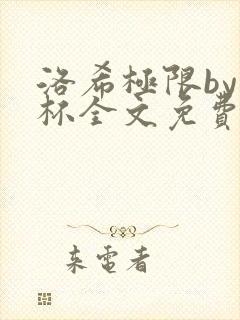 洛希極限by
杯全文免費
来電者